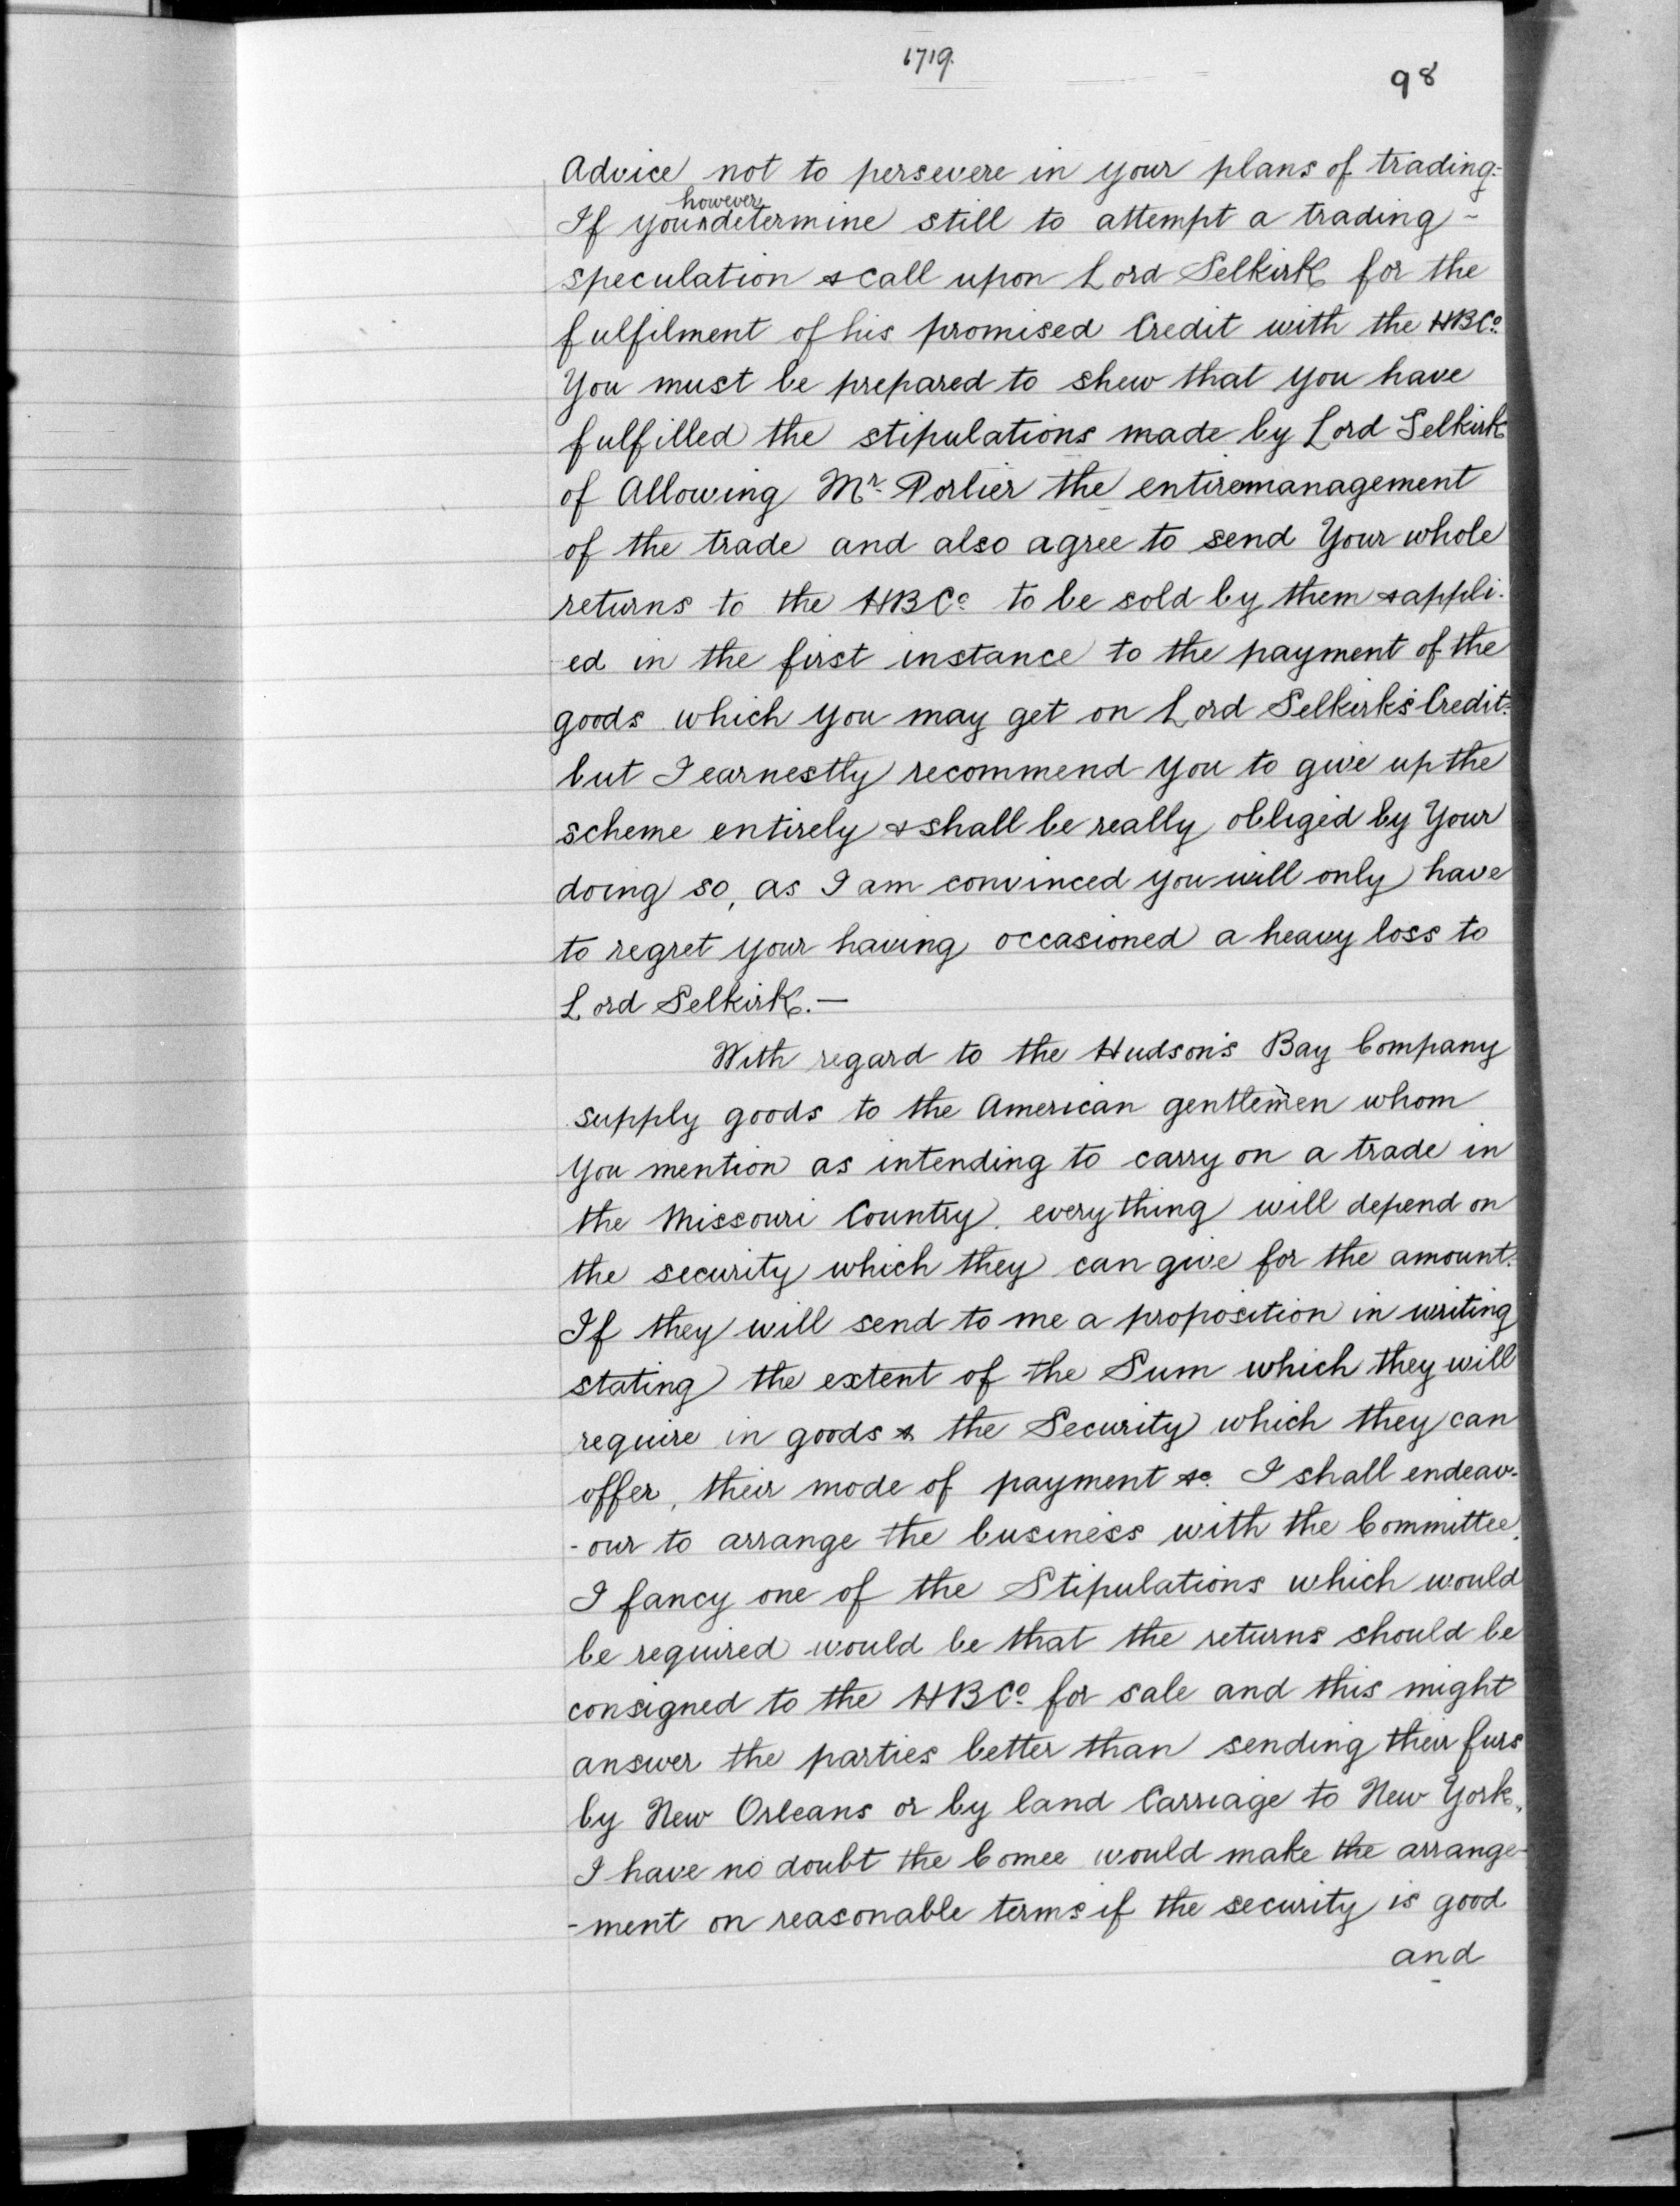 1719.
98
Advice not to persevere in your plans of trading.
however
If you determine still to attempt a trading -
speculation & call upon Lord Selkirk for the
fulfilment of his promised Credit with the HBCo.
You must be prepared to shew that you have
fulfilled the stipulations made by Lord Selkirk
of Allowing Mr. Porlier the entire management
of the trade and also agree to send Your whole
returns to the HBCo to be sold by them & appli-
ed in the first instance to the payment of the
goods which you may get on Lord Selkirk's Credit.
but I earnestly recommend you to give up the
scheme entirely & shall be really obliged by Your
doing so, as I am convinced you will only have
to regret your having occasioned a heavy loss to
Lord Selkirk. —
With regard to the Hudson's Bay Company
supply goods to the American gentlemen whom
You mention as intending to carry on a trade in
the Missouri Country. everything will depend on
the security which they can give for the amount.
If they will send to me a proposition in writing
stating the extent of the Sum which they will
require in goods & the Security which they can
offer, their mode of payment &c. I shall endeav-
-our to arrange the business with the Committee.
I fancy one of the Stipulations which would
be required would be that the returns should be
consigned to the HBCo for sale and this might
answer the parties better than sending their furs
by New Orleans or by land Carriage to New York,
I have no doubt the Comee would make the arrange-
-ment on reasonable terms if the security is good
and